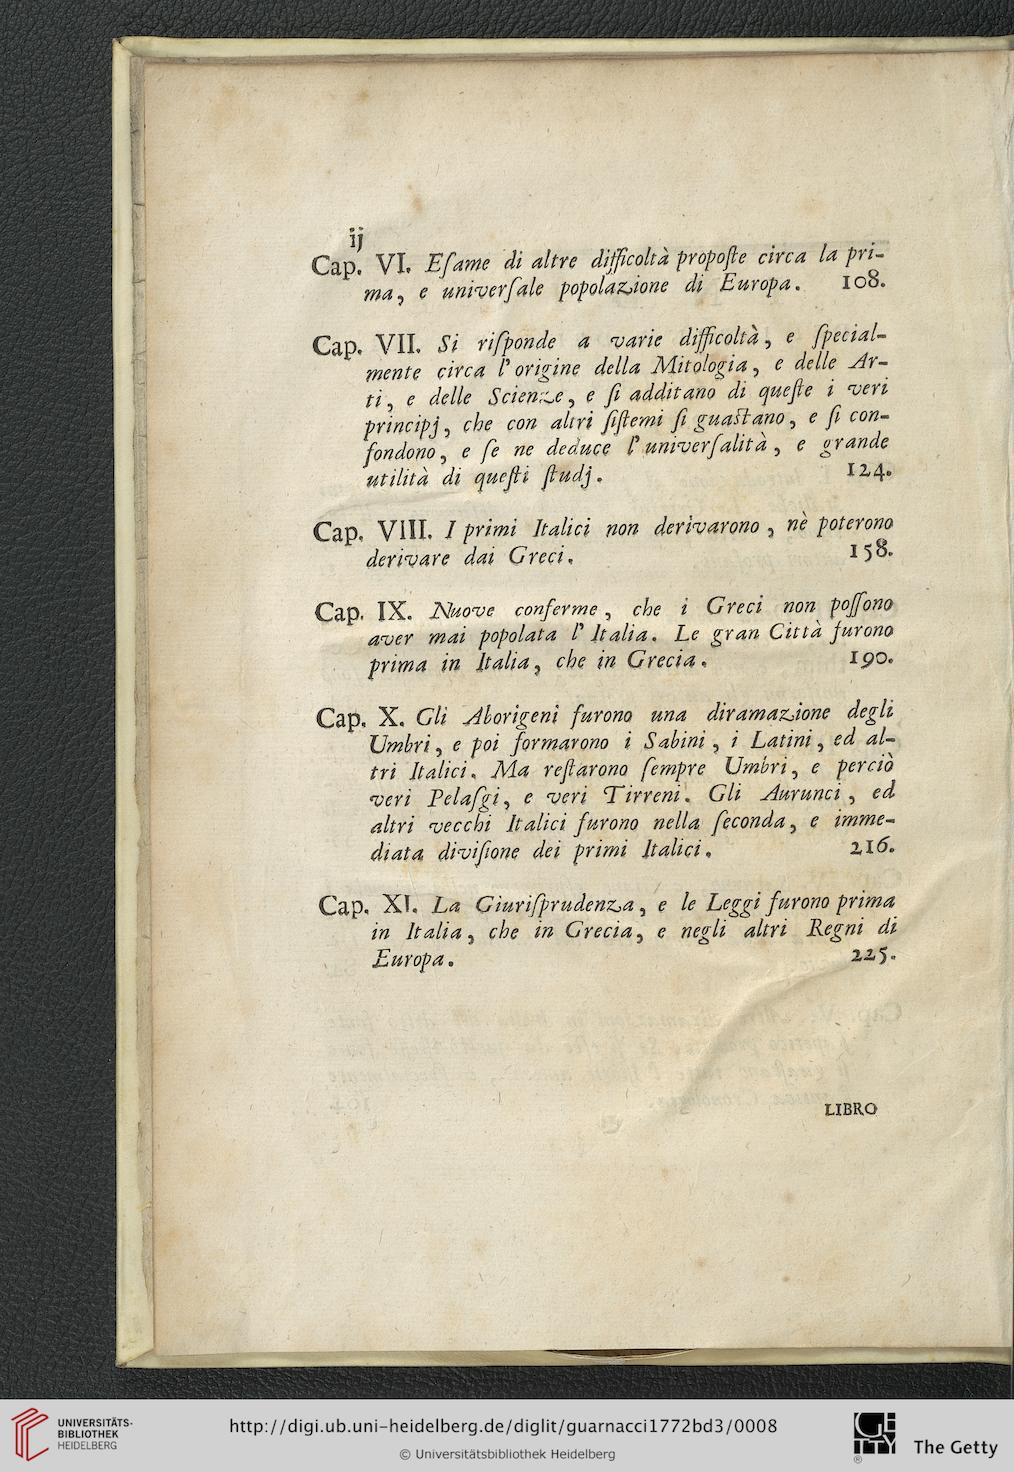 ij
Cap. VI. Eſame di altre difficoltà propoſte circa la pri-
ma, e univerſale popolazione di Europa. 108.
Cap. VII. Si riſponde a varie difficoltà, e ſpecial-
mente circa l'origine della Mitologia, e delle Ar-
ti, e delle Scienze, e ſi additano di queſte i veri
principj, che con altri ſiſtemi ſi guastano, e ſi con-
fondono, e ſe ne deduce l'univerſalità, e grande
utilità di queſti ſtudj. 124.
Cap. VIII. I primi Italici non derivarono, nè poterono
derivare dai Greci. 158.
Cap. IX. Nuove conferme, che i Greci non poſſono
aver mai popolata l'Italia. Le gran Città furono
prima in Italia, che in Grecia. 190.
Cap. X. Gli Aborigeni furono una diramazione degli
Umbri, e poi formarono i Sabini, i Latini, ed al-
tri Italici. Ma reſtarono ſempre Umbri, e perciò
veri Pelaſgi, e veri Tirreni. Gli Aurunci, ed
altri vecchi Italici furono nella ſeconda, e imme-
diata diviſione dei primi Italici. 216.
Cap. XI. La Giuriſprudenza, e le Leggi furono prima
in Italia, che in Grecia, e negli altri Regni di
Europa. 225.
LIBRO
UNIVERSITÄTS-
BIBLIOTHEK
HEIDELBERG
http://digi.ub.uni-heidelberg.de/diglit/guarnacci1772bd3/0008
© Universitätsbibliothek Heidelberg
The Getty